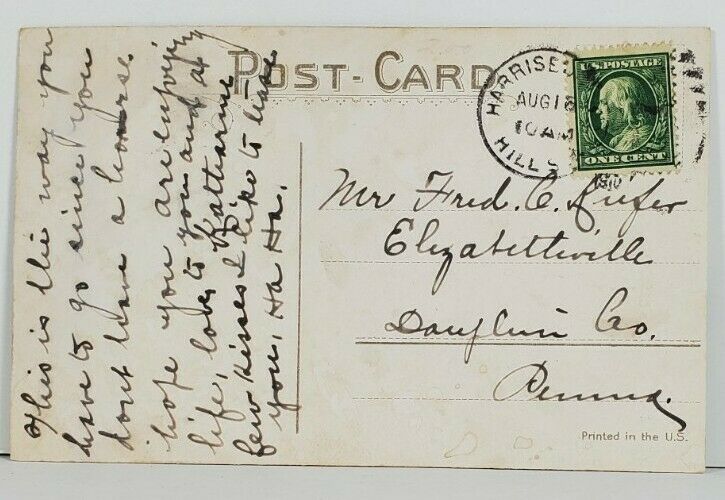 POST-CARD
This is the way you
have to go since you
dont have a horse.
hope you are enjoying
life, love to you and a
few kisses to Katharine
I like to tease
you, Ha Ha.
HARRISBU
AUG 16
10 AM
HILL S
1910
U.S. POSTAGE
ONE CENT
Mr Fred. C. Lufer
Elizabethville
Dauphin Co.
Penna.
Printed in the U.S.